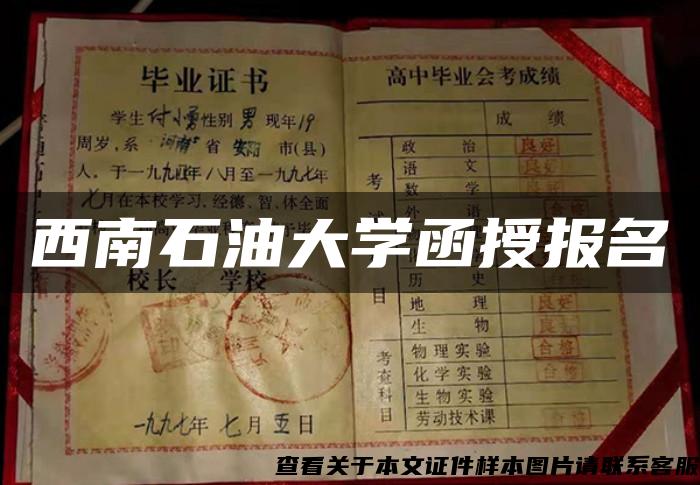 毕业证书
学生付小勇性别男现年19
周岁,系河南省安阳市(县)
人,于一九九四年八月至一九九七年
七月在本校学习,经德、智、体全面
西南石油大学函授报名
校长 学校
一九九七年七月五日
高中毕业会考成绩
成绩
考试
政治 良好
语文 良好
数学
目
历史
地理 良好
生物 良好
考查科目
物理实验 合格
化学实验 合格
生物实验
劳动技术课 合格
查看关于本文证件样本图片请联系客服